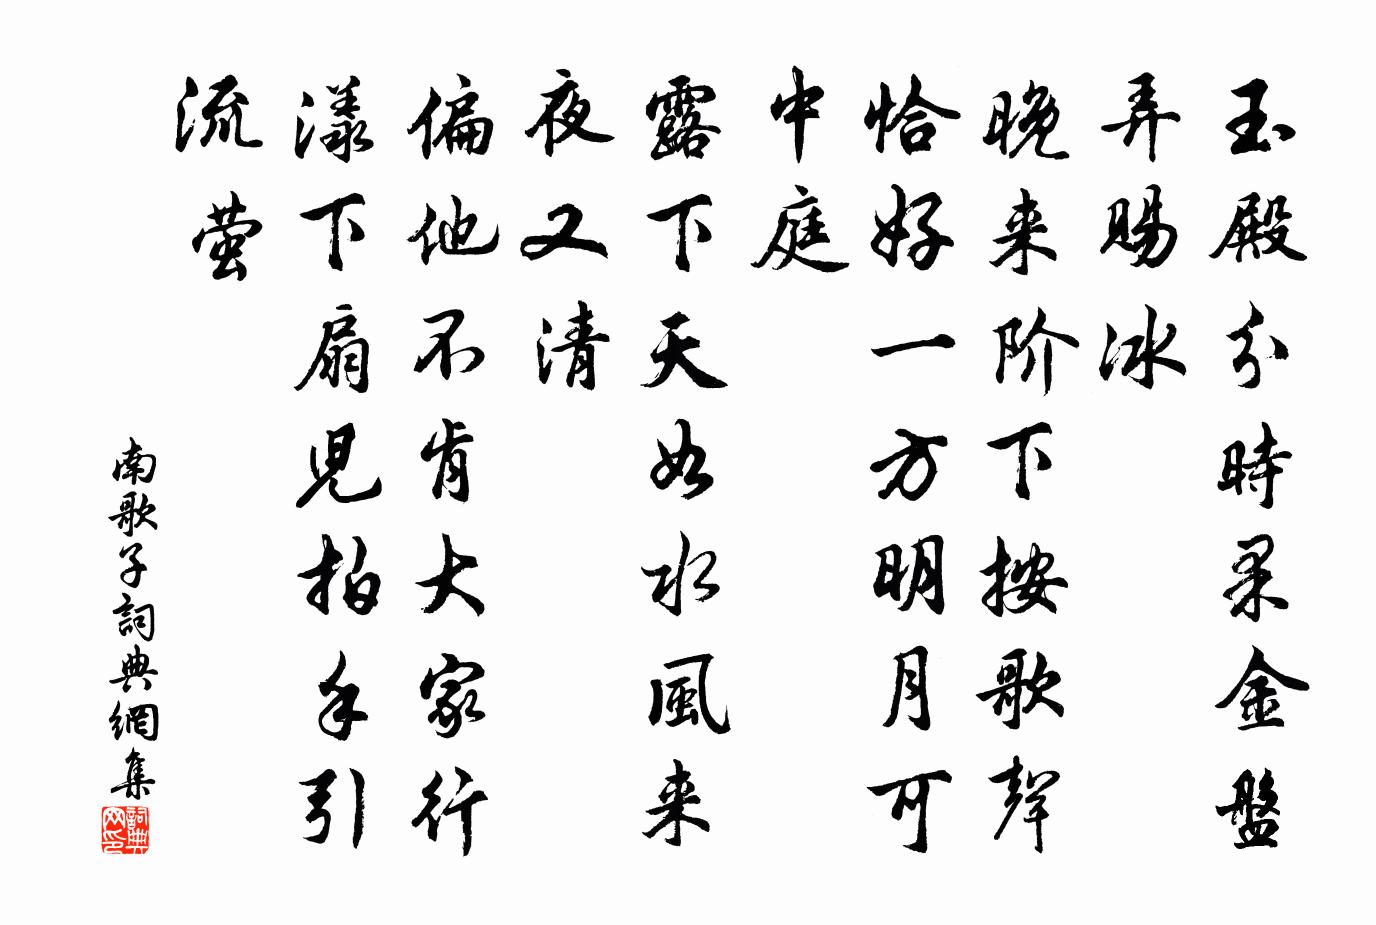 玉殿分時果金盤
弄賜冰
晚来阶下按歌聲
恰好一方明月可
中庭
露下天如水風来
夜又清
偏他不肯大家行
漾下扇兒拍手引
流萤
南歌子詞典網集
詞典网印